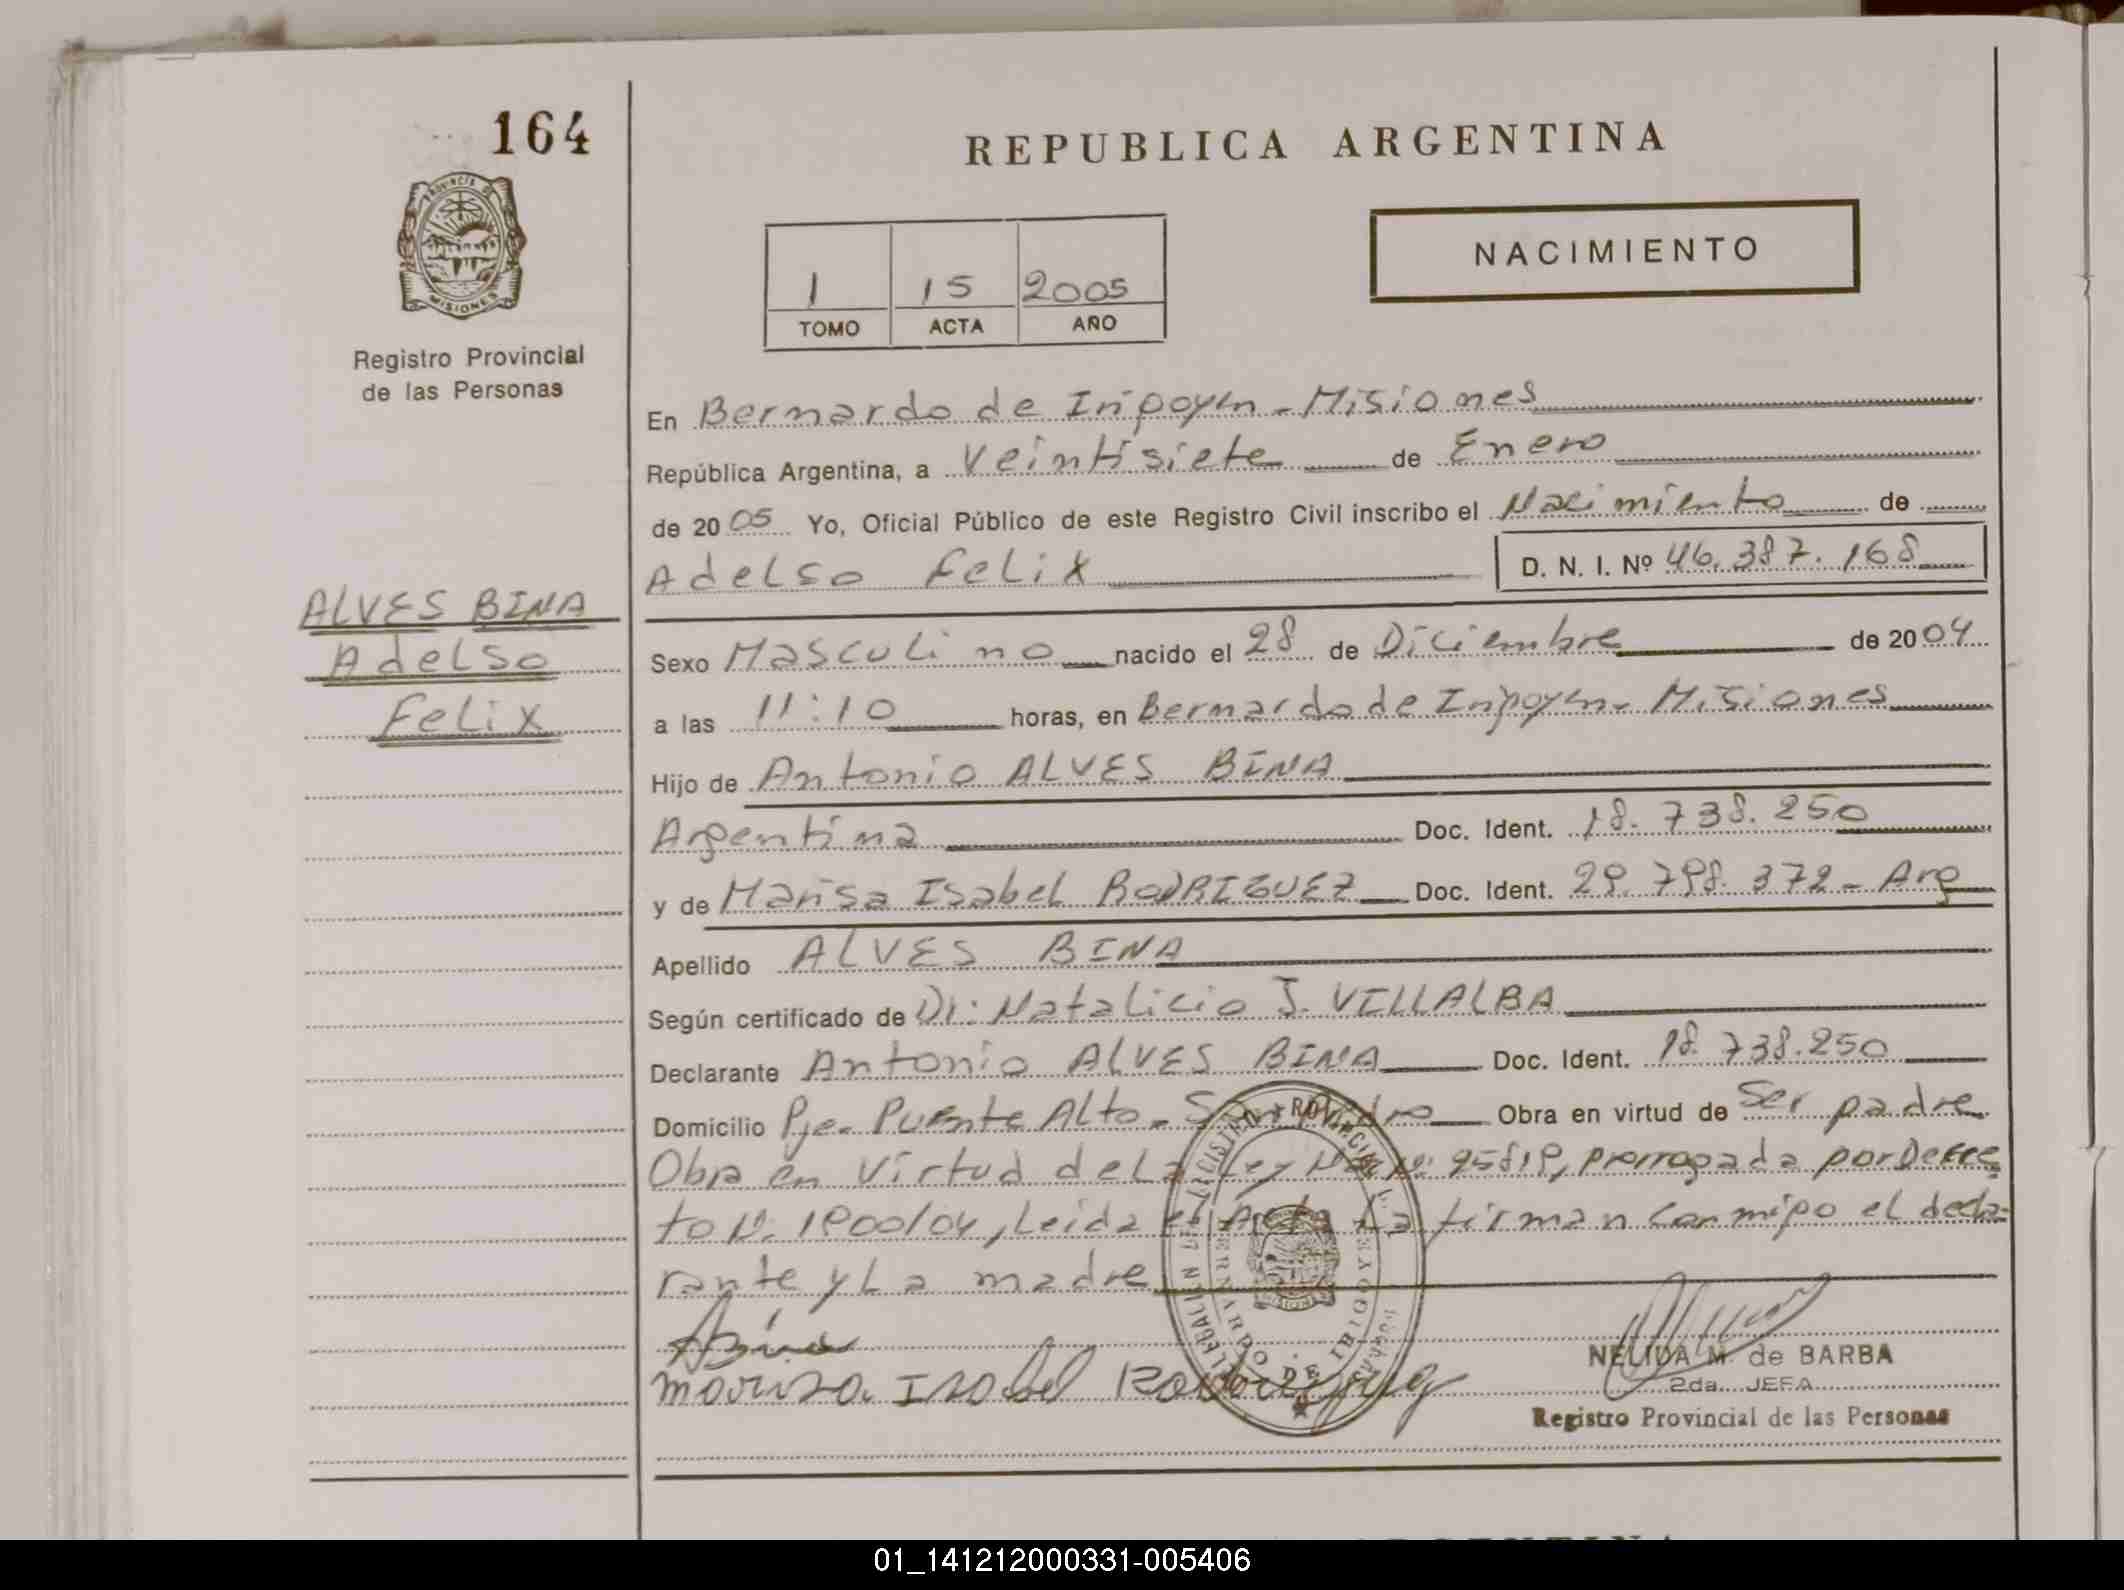 164
REPUBLICA ARGENTINA
PROVINCIA DE
MISIONES
Registro Provincial
de las Personas
NACIMIENTO
1 15 2005
TOMO ACTA AÑO
En Bernardo de Irigoyen - Misiones
República Argentina, a Veintisiete de Enero
de 2005 Yo, Oficial Público de este Registro Civil inscribo el Nacimiento de
Adelso Felix D. N. I. Nº 46.387.168
ALVES BINA
Adelso
Felix
Sexo Masculino nacido el 28 de Diciembre de 2004
a las 11:10 horas, en Bernardo de Irigoyen - Misiones
Hijo de Antonio ALVES BINA
Argentina Doc. Ident. 18.738.250
y de Marisa Isabel RODRIGUEZ Doc. Ident. 29.798.372 - Arg
Apellido ALVES BINA
Según certificado de Dr: Natalicio J. VILLALBA
Declarante Antonio ALVES BINA Doc. Ident. 18.738.250
Domicilio Pje. Puente Alto - San Pedro Obra en virtud de Ser padre
Obra en Virtud de La Ley Nac. Nº 25819, prorrogada por Decre
to Nº 1900/04, Leida el Acta La firman conmigo el decla-
rante y La madre
Bina
Marisa Isabel Rodriguez
NELIDA M. de BARBA
2da. JEFA
Registro Provincial de las Personas
BERNARDO DE IRIGOYEN
01_141212000331-005406